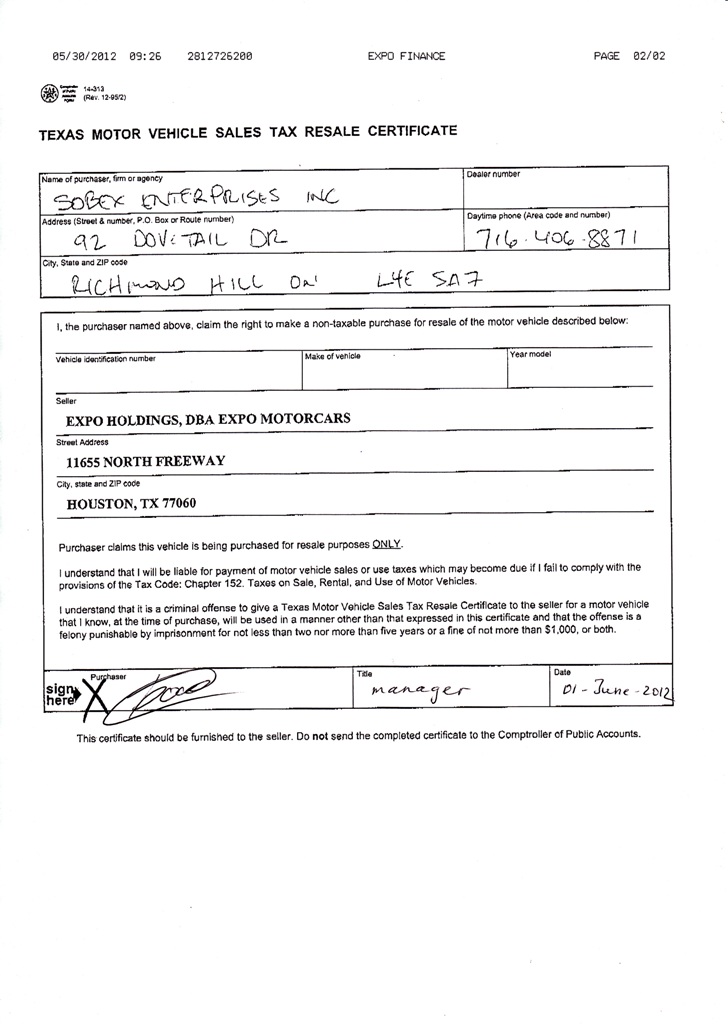 05/30/2012 09:26 2812726200 EXPO FINANCE PAGE 02/02
14-313
(Rev. 12-95/2)
TEXAS MOTOR VEHICLE SALES TAX RESALE CERTIFICATE
Name of purchaser, firm or agency
Dealer number
SOBEX ENTERPRISES INC
Address (Street & number, P.O. Box or Route number)
Daytime phone (Area code and number)
92 DOVETAIL DR
716-406-8871
City, State and ZIP code
RICHMOND HILL ON L4E 5A7
I, the purchaser named above, claim the right to make a non-taxable purchase for resale of the motor vehicle described below:
Vehicle identification number
Make of vehicle
Year model
Seller
EXPO HOLDINGS, DBA EXPO MOTORCARS
Street Address
11655 NORTH FREEWAY
City, state and ZIP code
HOUSTON, TX 77060
Purchaser claims this vehicle is being purchased for resale purposes ONLY.
I understand that I will be liable for payment of motor vehicle sales or use taxes which may become due if I fail to comply with the
provisions of the Tax Code: Chapter 152. Taxes on Sale, Rental, and Use of Motor Vehicles.
I understand that it is a criminal offense to give a Texas Motor Vehicle Sales Tax Resale Certificate to the seller for a motor vehicle
that I know, at the time of purchase, will be used in a manner other than that expressed in this certificate and that the offense is a
felony punishable by imprisonment for not less than two nor more than five years or a fine of not more than $1,000, or both.
Purchaser
Title
Date
sign
here
X
manager
01-June-2012
This certificate should be furnished to the seller. Do not send the completed certificate to the Comptroller of Public Accounts.